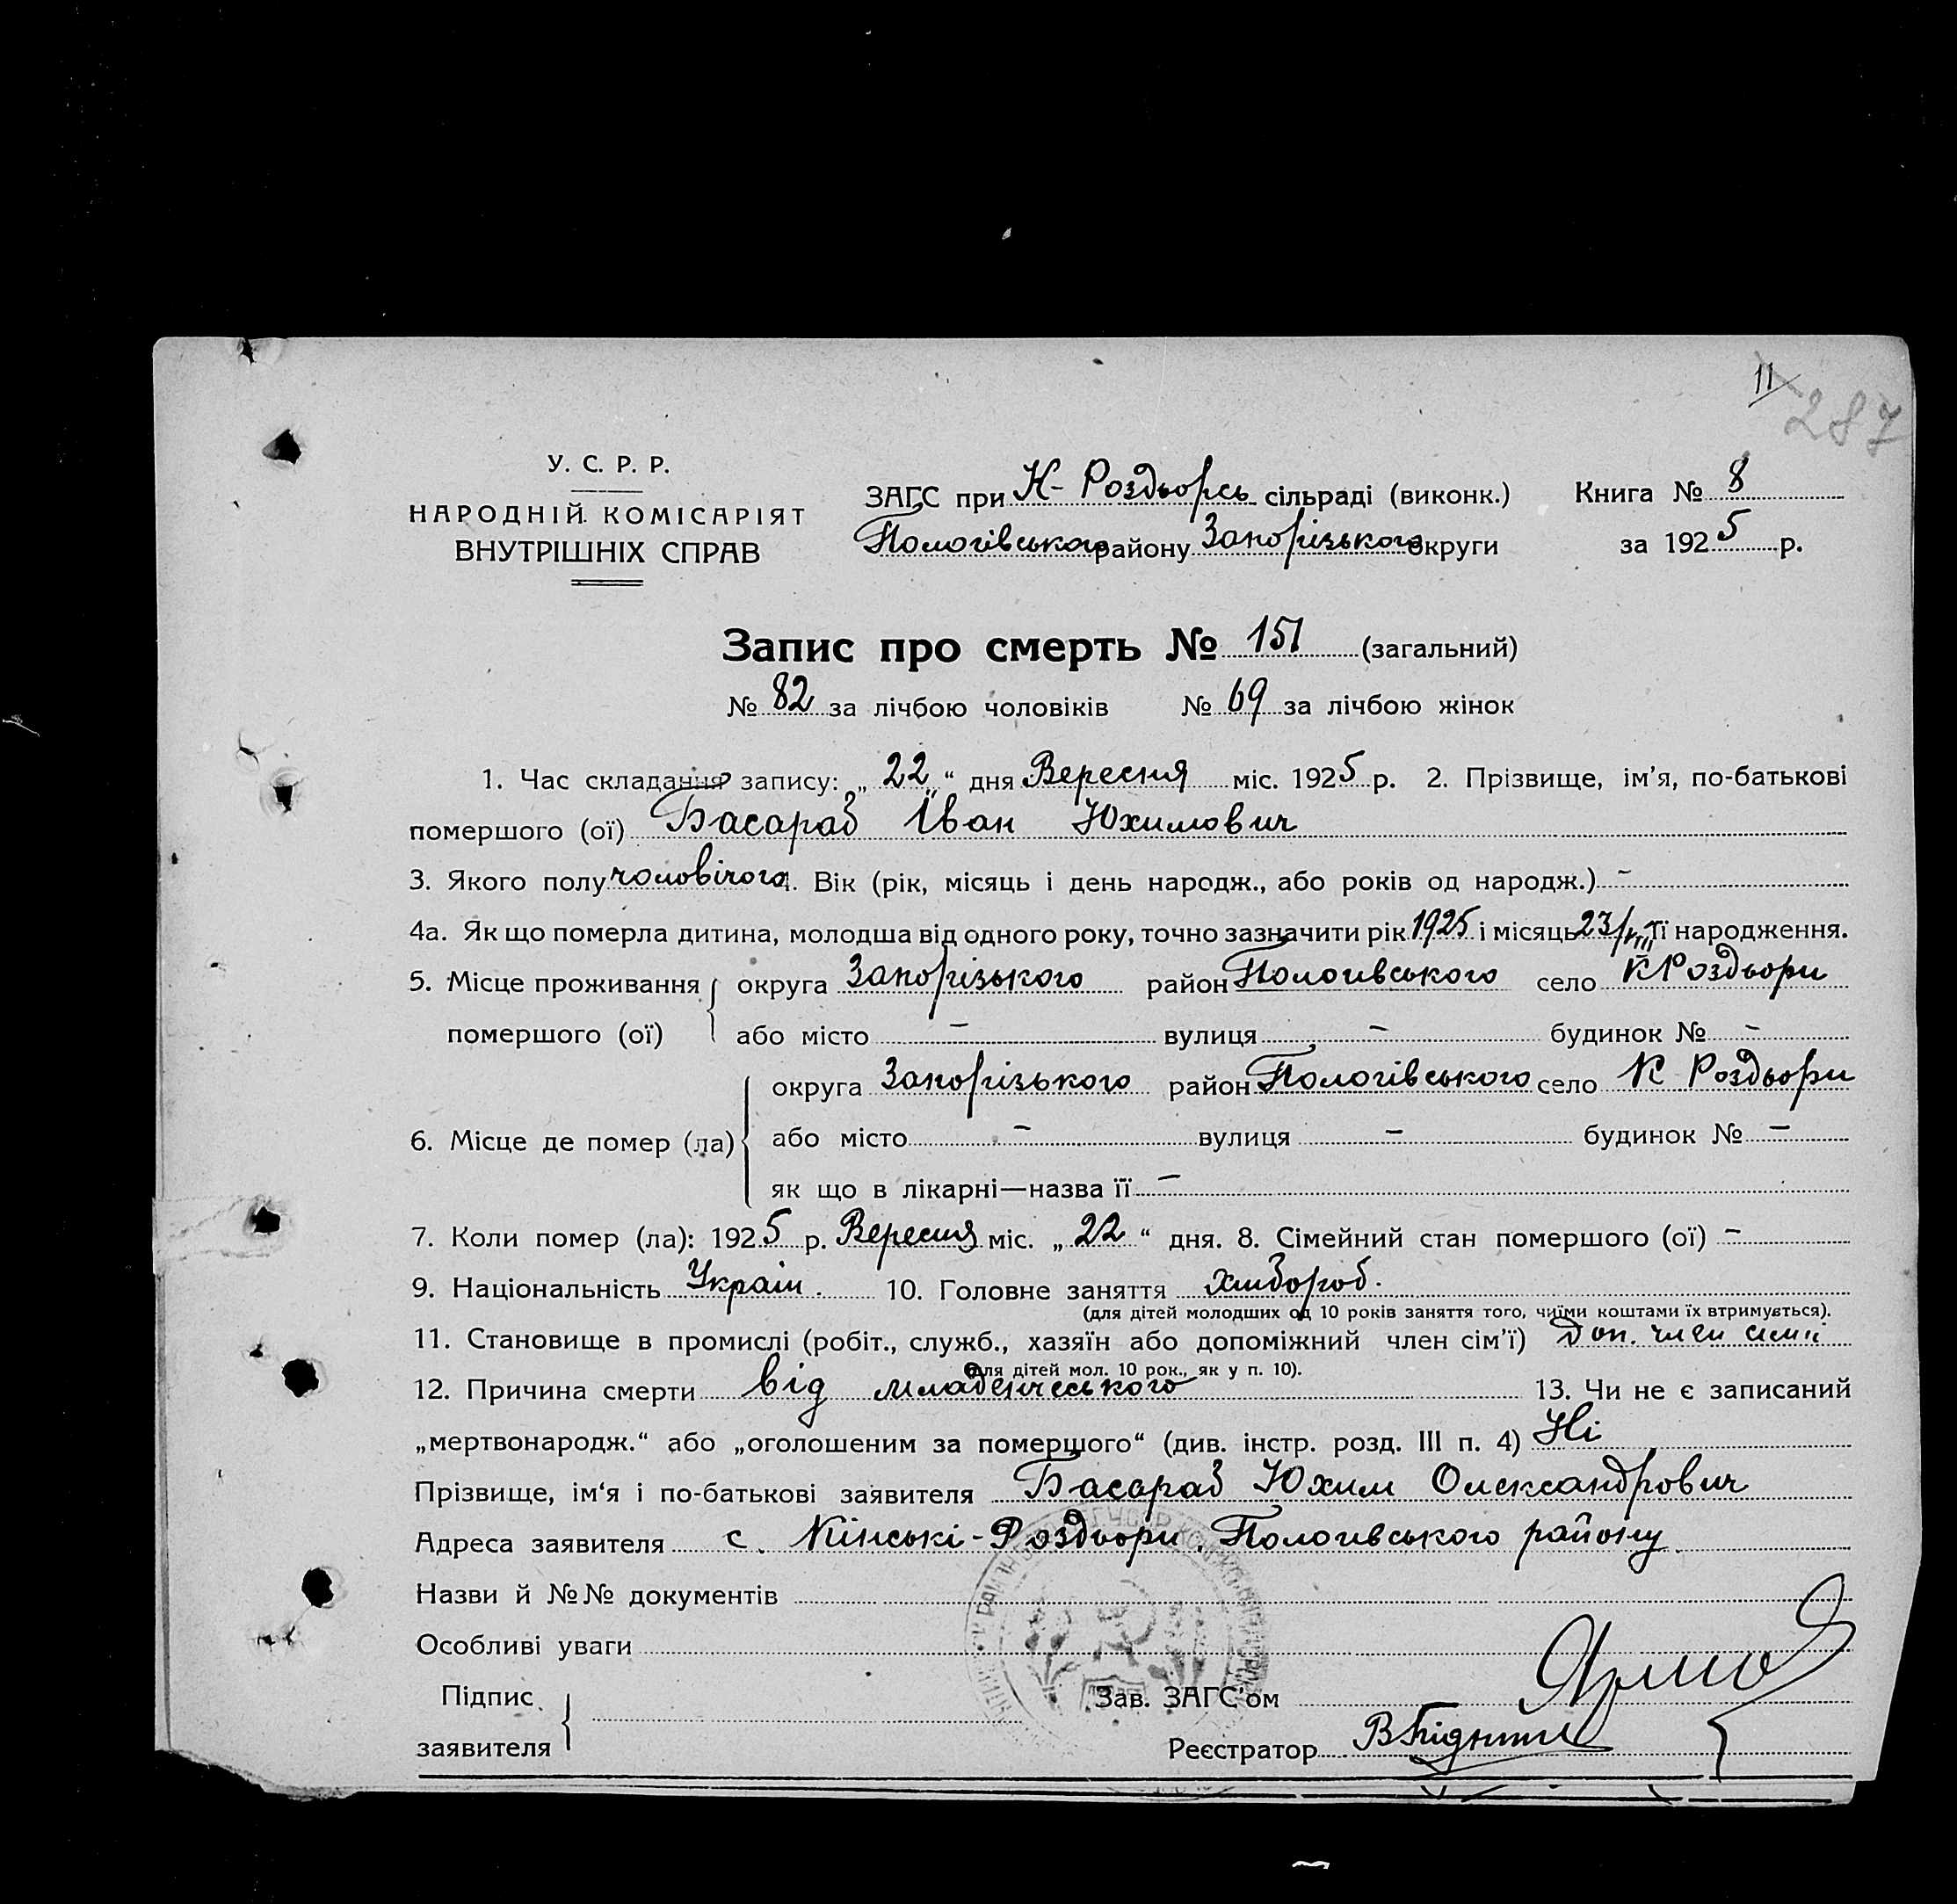 11
287
У. С. Р. Р.
НАРОДНІЙ КОМІСАРІЯТ
ВНУТРІШНІХ СПРАВ
ЗАГС при К-Роздьорсь сільраді (виконк.)
Пологівського району Запорізького округи
Книга № 8
за 1925 р.
Запис про смерть № 151 (загальний)
№ 82 за лічбою чоловіків № 69 за лічбою жінок
1. Час складання запису: „ 22 “ дня Вересня міс. 1925 р. 2. Прізвище, ім’я, по-батькові
помершого (ої) Басараб Іван Юхимович
3. Якого полу чоловічого 4. Вік (рік, місяць і день народж., або років од народж.) -
4а. Як що померла дитина, молодша від одного року, точно зазначити рік 1925 і місяць 23/VIII її народження.
5. Місце проживання помершого (ої) округа Запорізького район Пологивського село К Роздьори
або місто - вулиця - будинок № -
6. Місце де помер (ла) округа Запорізького район Пологівського село К Роздьори
або місто - вулиця - будинок № -
як що в лікарні—назва її -
7. Коли помер (ла): 1925 р. Вересня міс. „ 22 “ дня. 8. Сімейний стан помершого (ої) -
9. Національність Украін. 10. Головне заняття хлібороб.
(для дітей молодших од 10 років заняття того, чиїми коштами їх втримується).
11. Становище в промислі (робіт., служб., хазяїн або допоміжний член сім’ї) Доп. член симі
(для дітей мол. 10 рок., як у п. 10).
12. Причина смерти від младенчеського 13. Чи не є записаний
„мертвонародж.“ або „оголошеним за помершого“ (див. інстр. розд. III п. 4) Ні
Прізвище, ім‘я і по-батькові заявителя Басараб Юхим Олександрович
Адреса заявителя с. Кінські-Роздьори, Пологивського району
Назви й №№ документів
Особливі уваги
Підпис
заявителя
Зав. ЗАГС’ом
Реєстратор